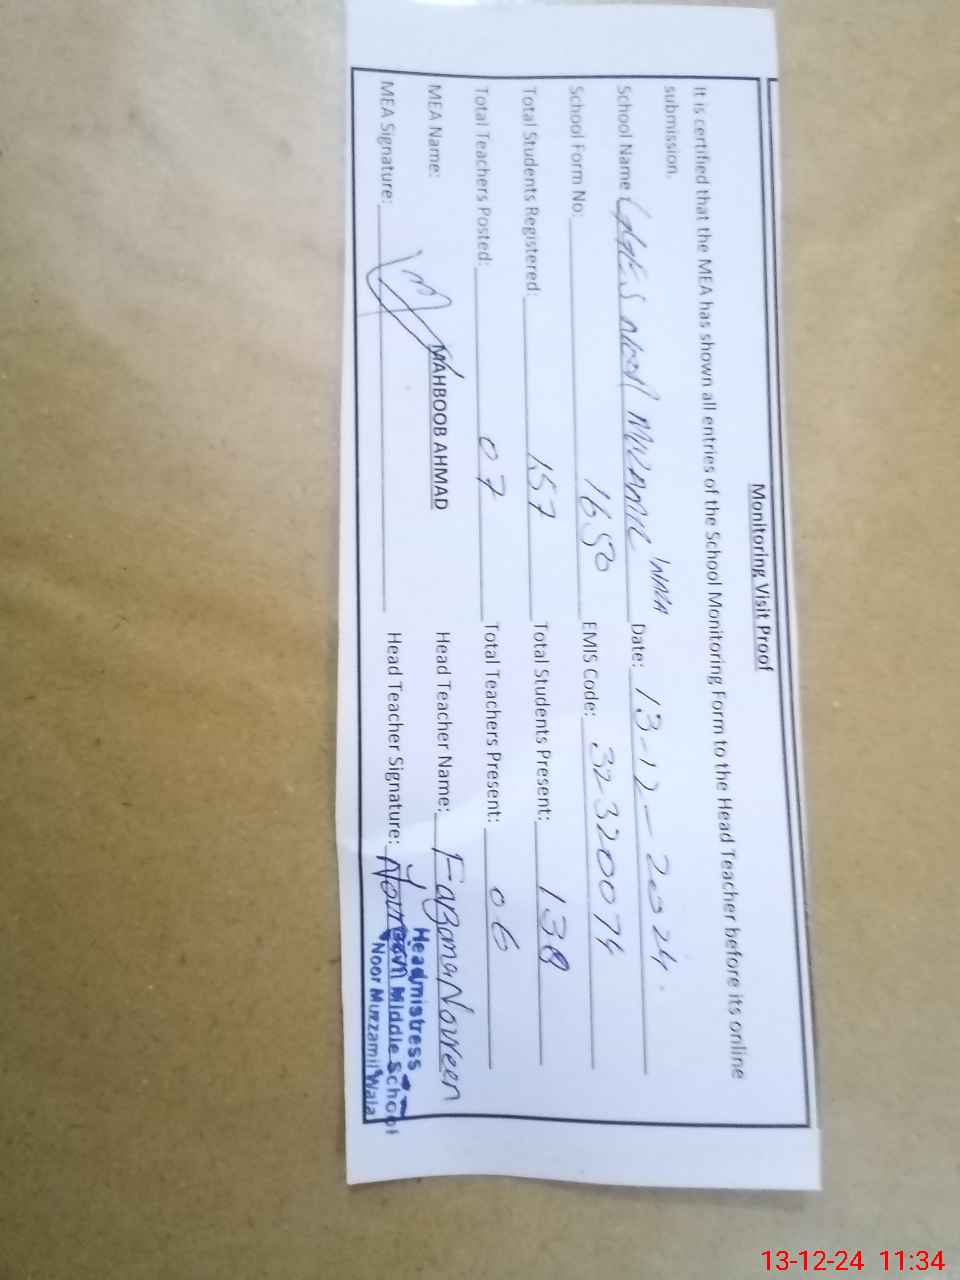 Monitoring Visit Proof
It is certified that the MEA has shown all entries of the School Monitoring Form to the Head Teacher before its online
submission.
School Name Wala Date: 13-12-2024.
School Form No: 1650 EMIS Code: 32320074
Total Students Registered: 157 Total Students Present: 138
Total Teachers Posted: 07 Total Teachers Present: 06
MEA Name: MAHBOOB AHMAD Head Teacher Name: Farzana Noureen
MEA Signature: Head Teacher Signature: Noureen
Headmistress
Govt Middle School
Noor Muzzamil Wala
13-12-24 11:34